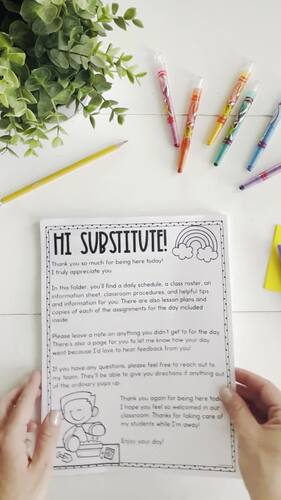 HI SUBSTITUTE!
Thank you so much for being here today!
I truly appreciate you.
In this folder, you'll find a daily schedule, a class roster, an
information sheet, classroom procedures, and helpful tips
and information for you. There are also lesson plans and
copies of each of the assignments for the day included
inside.
Please leave a note on anything you didn't get to for the day.
There's also a page for you to let me know how your day
went because I'd love to hear feedback from you!
If you have any questions, please feel free to reach out to
my team. They'll be able to give you directions if anything out
of the ordinary pops up.
Thank you again for being here today.
I hope you feel so welcomed in our
classroom. Thanks for taking care of
my students while I'm away!
Enjoy your day!